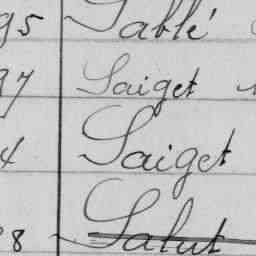 95 Sablé
97 Saiget
4 Saiget
8 Salut